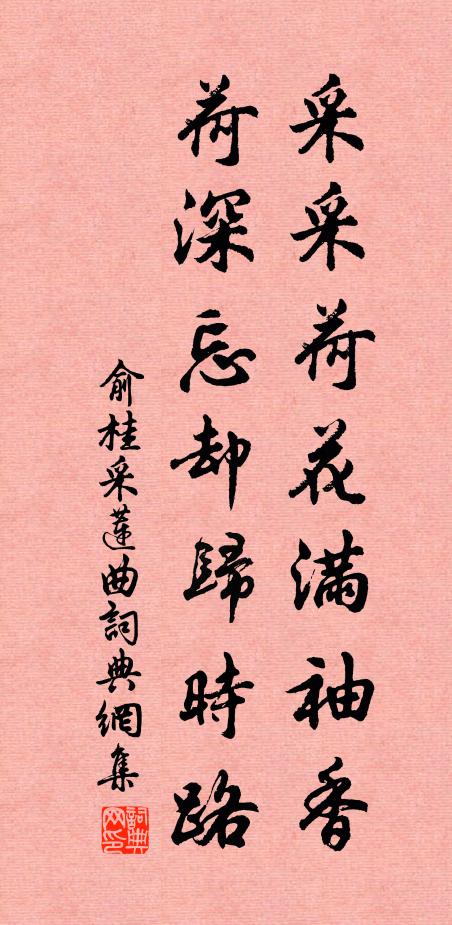 采采荷花滿袖香
荷深忘却歸時路
俞桂采蓮曲詞典網集
詞典网印